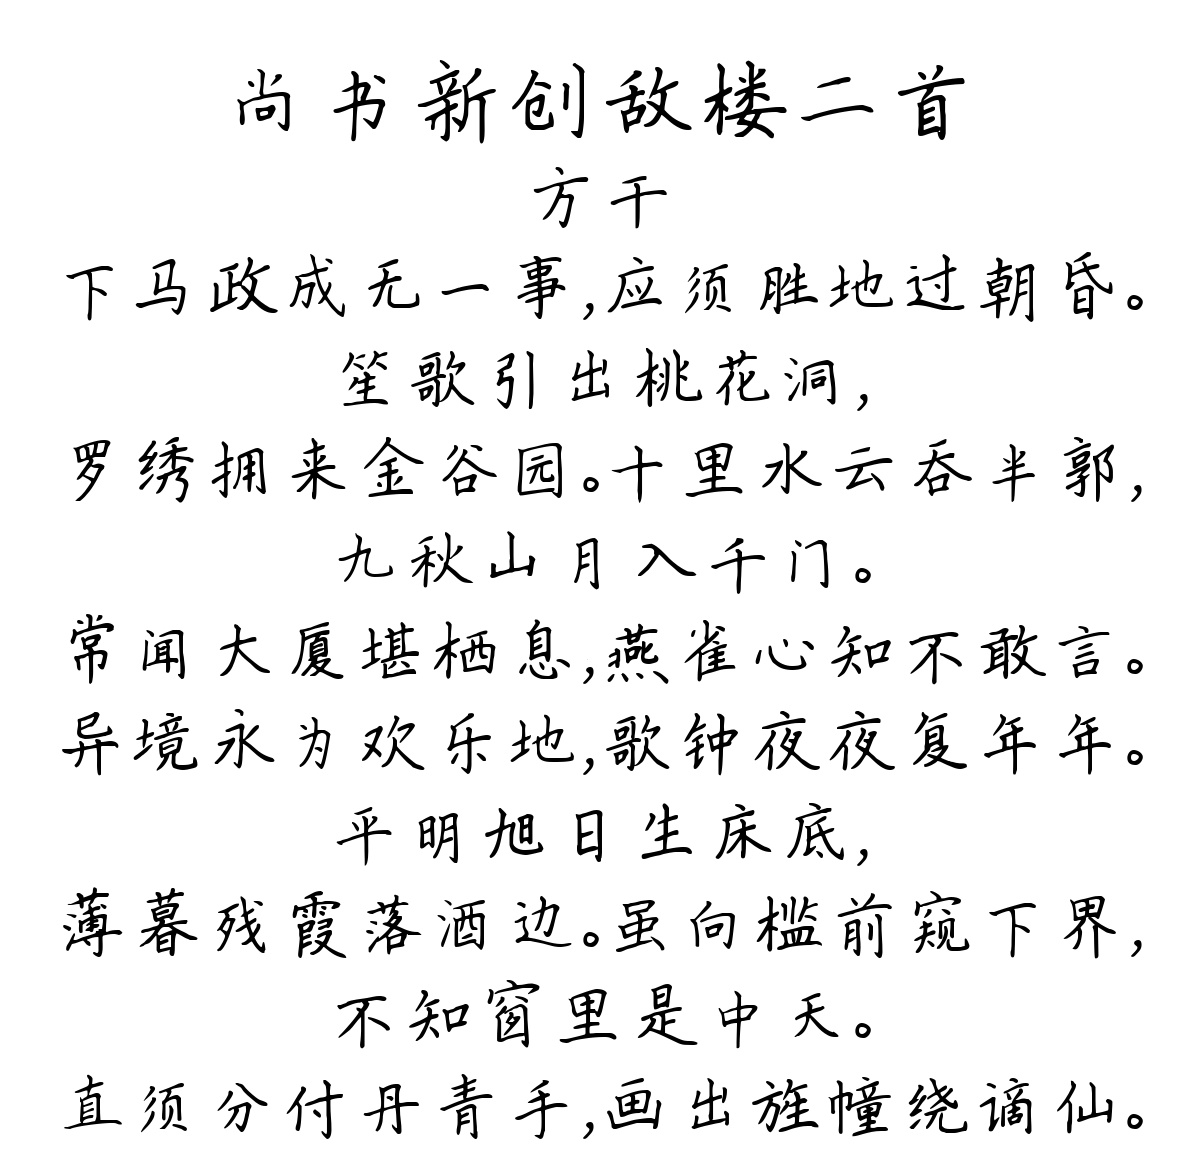 尚书新创敌楼二首
方干
下马政成无一事,应须胜地过朝昏。
笙歌引出桃花洞,
罗绣拥来金谷园。十里水云吞半郭,
九秋山月入千门。
常闻大厦堪栖息,燕雀心知不敢言。
异境永为欢乐地,歌钟夜夜复年年。
平明旭日生床底,
薄暮残霞落酒边。虽向槛前窥下界,
不知窗里是中天。
直须分付丹青手,画出旌幢绕谪仙。